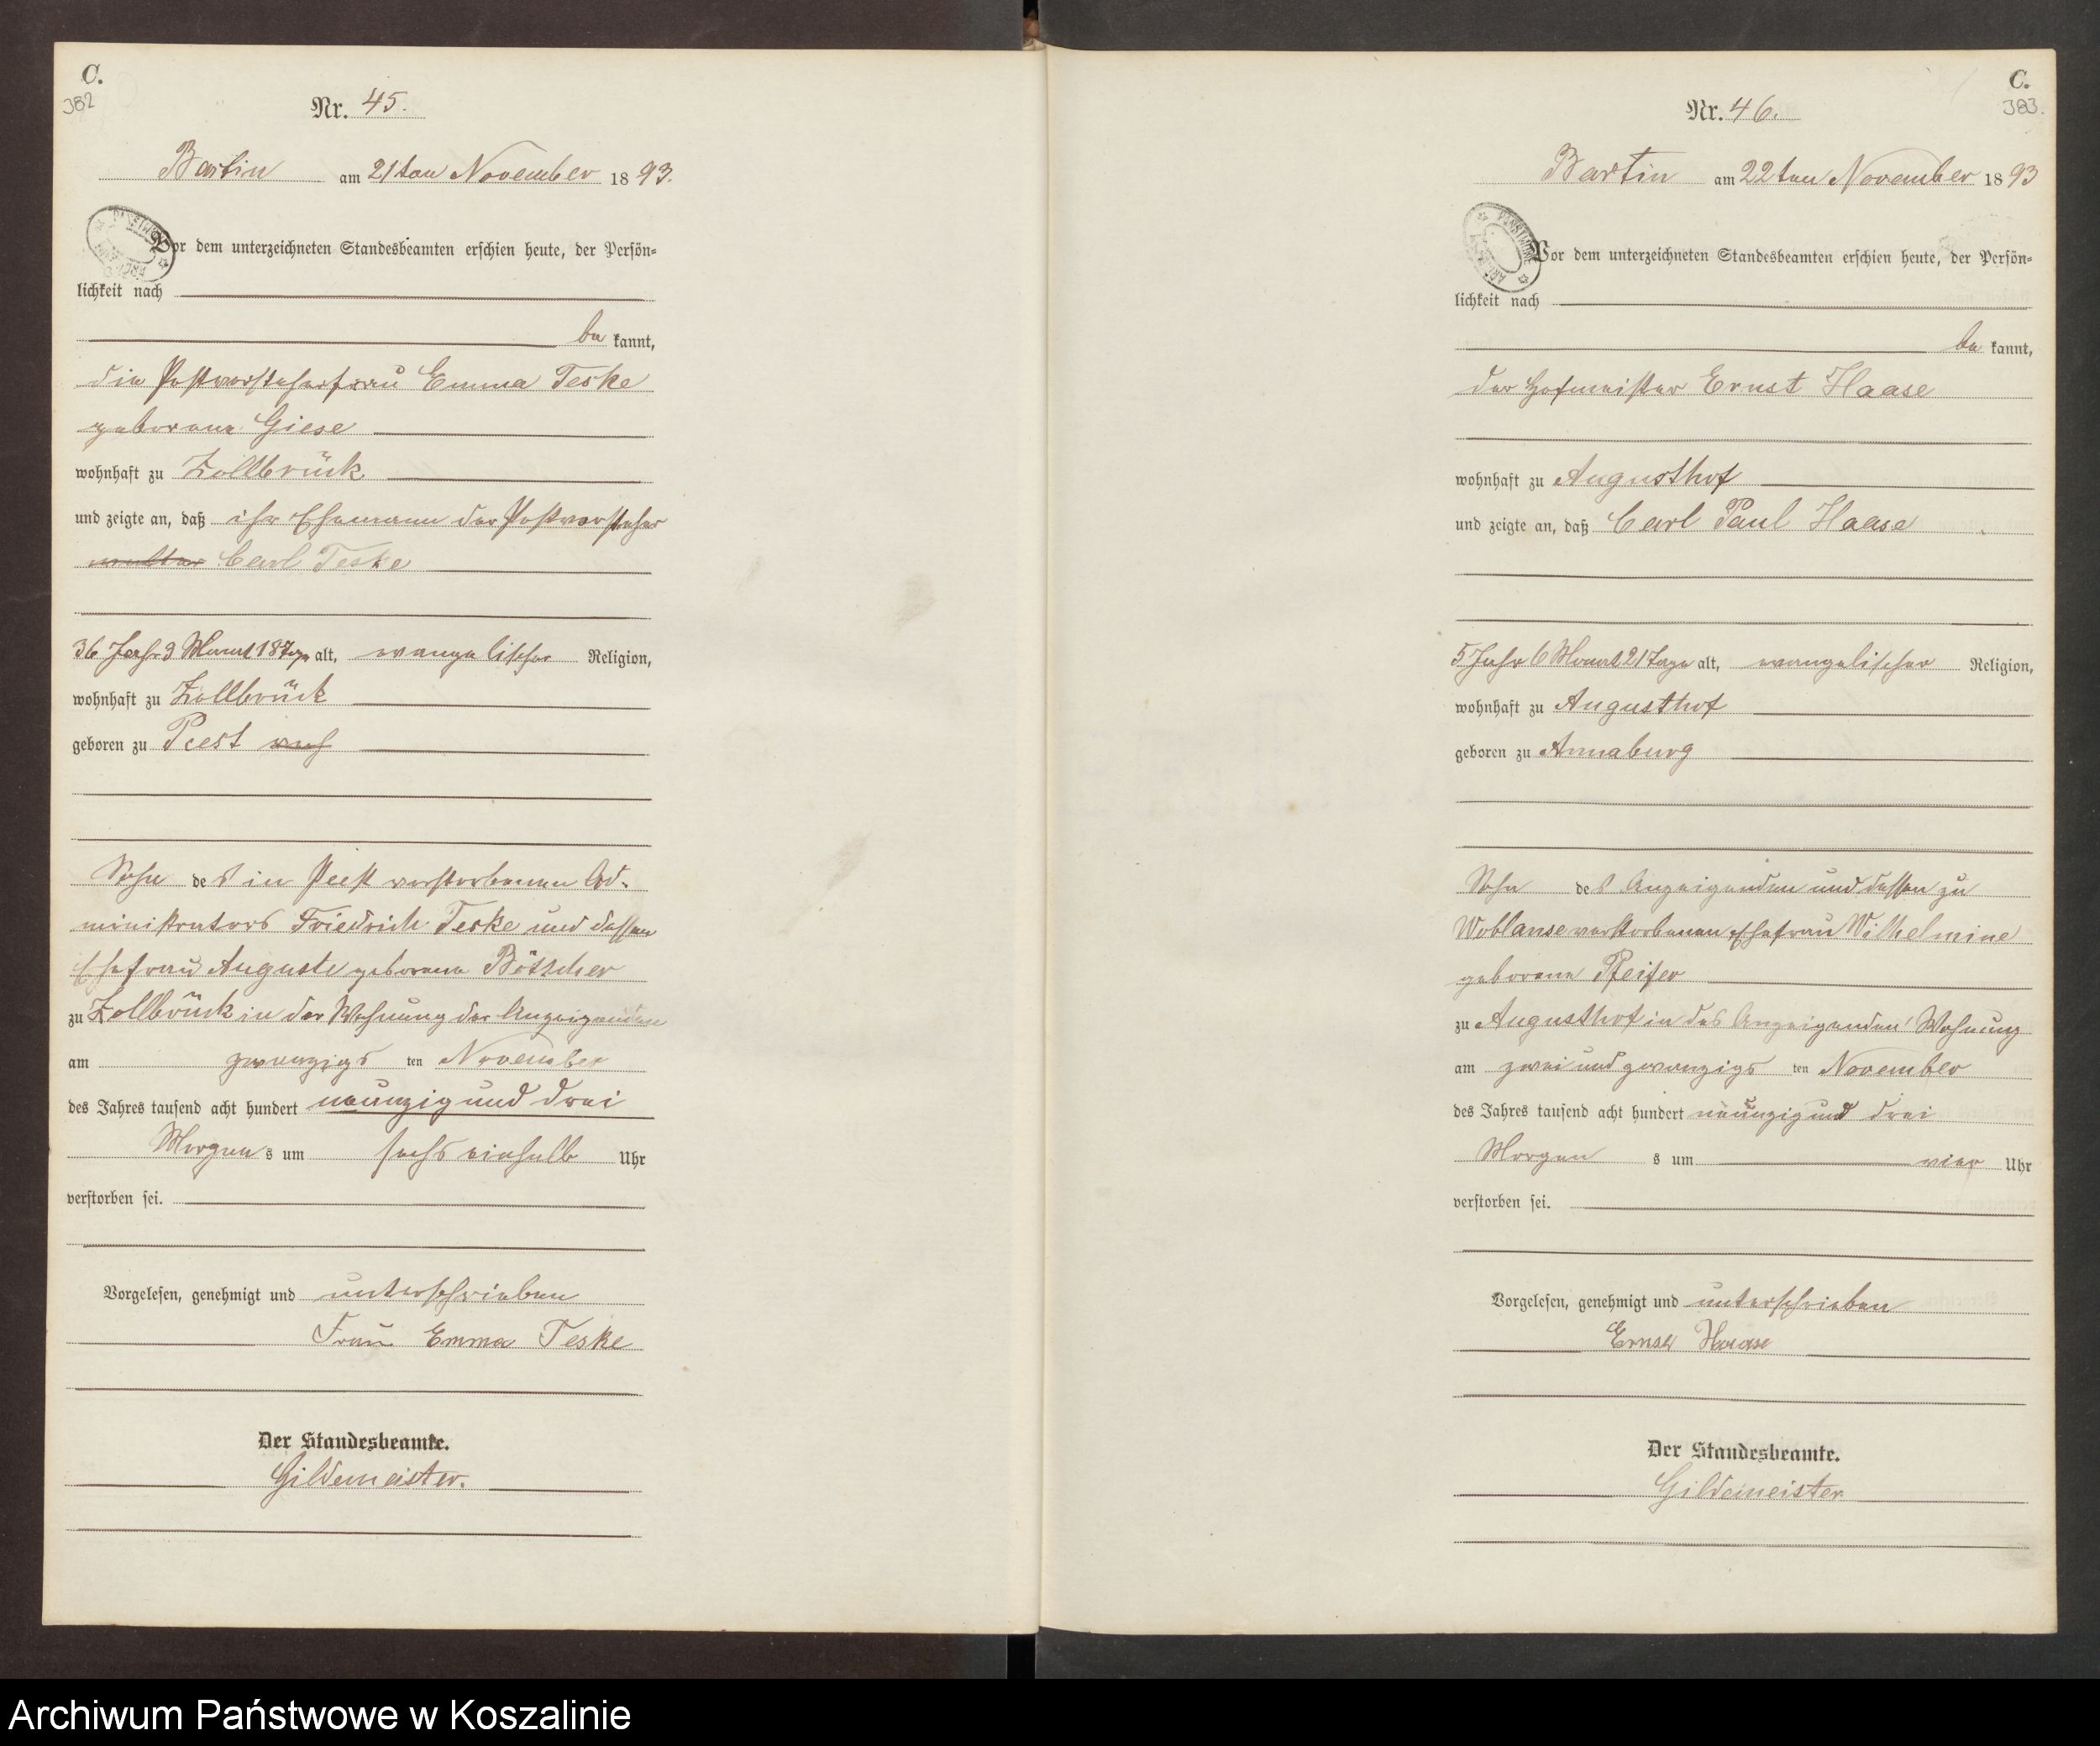 C.
382
Nr. 45.
Bartin am 21ten November 1893.
Vor dem unterzeichneten Standesbeamten erschien heute, der Persön=
lichkeit nach
bekannt,
die Postvorsteherfrau Emma Teske
geborene Giese
wohnhaft zu Zollbrück
und zeigte an, daß ihr Ehemann der Postvorsteher
Carl Teske
36 Jahr 9 Monat 18 Tage alt, evangelischer Religion,
wohnhaft zu Zollbrück
geboren zu Peest
Sohn des in Peest verstorbenen Ad-
ministrators Friedrich Teske und dessen
Ehefrau Auguste geborene Bötzcher
zu Zollbrück in der Wohnung der Anzeigenden
am zwanzigsten November
des Jahres tausend acht hundert neunzig und drei
Morgens um sechs einhalb Uhr
verstorben sei.
Vorgelesen, genehmigt und unterschrieben
Frau Emma Teske
Der Standesbeamte.
Gildemeister.
C.
383.
Nr. 46.
Bartin am 22ten November 1893
Vor dem unterzeichneten Standesbeamten erschien heute, der Persön=
lichkeit nach
bekannt,
der Hofmeister Ernst Haase
wohnhaft zu Augusthof
und zeigte an, daß Carl Paul Haase
5 Jahr 6 Monat 21 Tage alt, evangelischer Religion,
wohnhaft zu Augusthof
geboren zu Annaburg
Sohn des Anzeigenden und dessen zu
Woblanse verstorbenen Ehefrau Wilhelmine
geborene Pfeifer
zu Augusthof in des Anzeigenden Wohnung
am zwei und zwanzigsten November
des Jahres tausend acht hundert neunzig und drei
Morgens um vier Uhr
verstorben sei.
Vorgelesen, genehmigt und unterschrieben
Ernst Haase
Der Standesbeamte.
Gildemeister
Archiwum Państwowe w Koszalinie